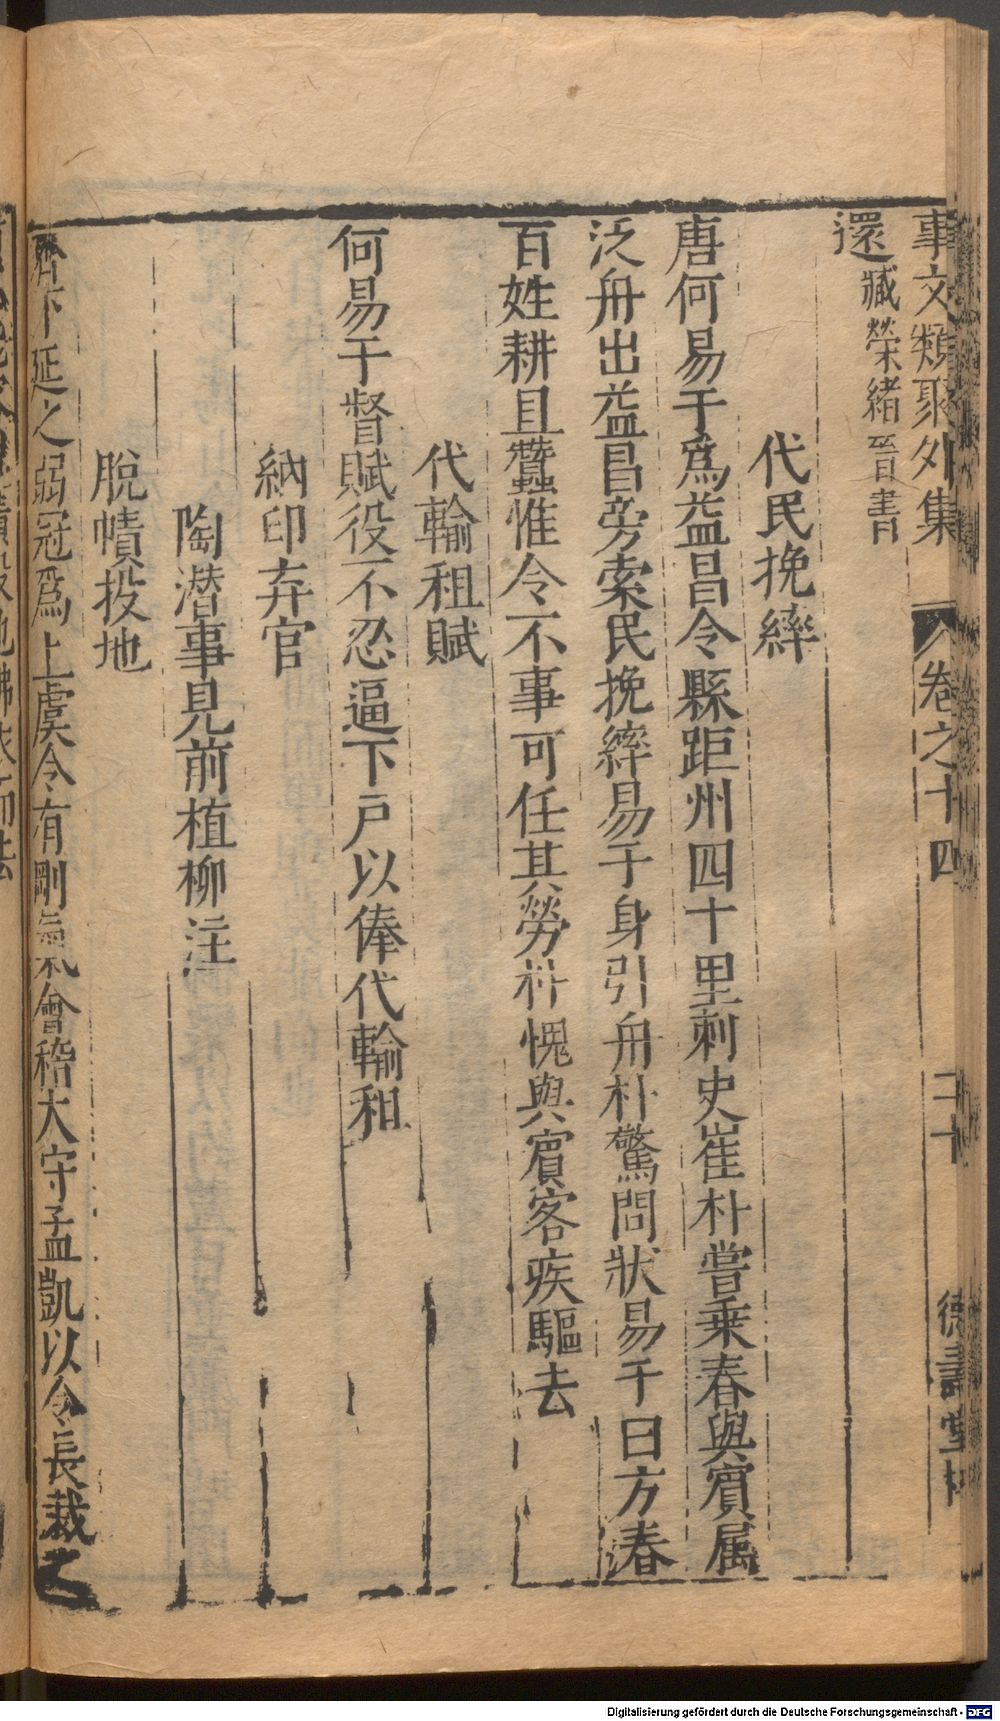 事文類聚外集 卷之十四 二十 德壽堂梓
還臧榮緒晉書
代民挽縴
唐何易于爲益昌令縣距州四十里刺史崔朴嘗乗春與賔属
泛舟出益昌旁索民挽縴易于身引舟朴驚問狀易于曰方春
百姓耕且蠶惟令不事可任其勞朴愧與賔客疾驅去
代輸租賦
何易于督賦役不忍逼下戸以俸代輸租
納印弃官
陶潜事見前植柳注
脫幘投地
齊卞延之弱冠爲上虞令有剛氣會稽太守孟凱以令長裁之
Digitalisierung gefördert durch die Deutsche Forschungsgemeinschaft - DFG